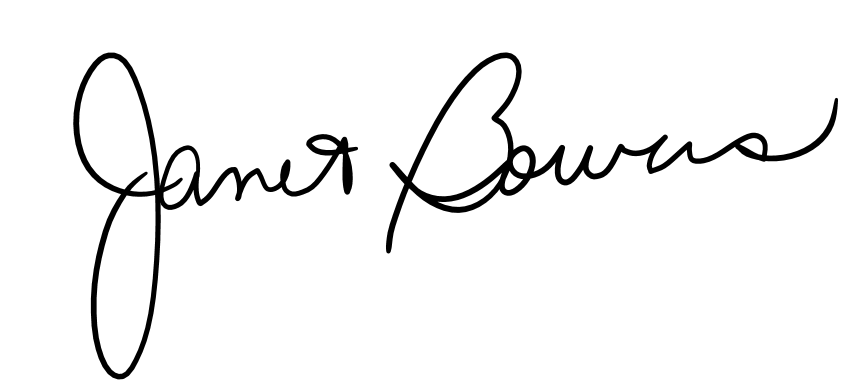 Janet Bowers